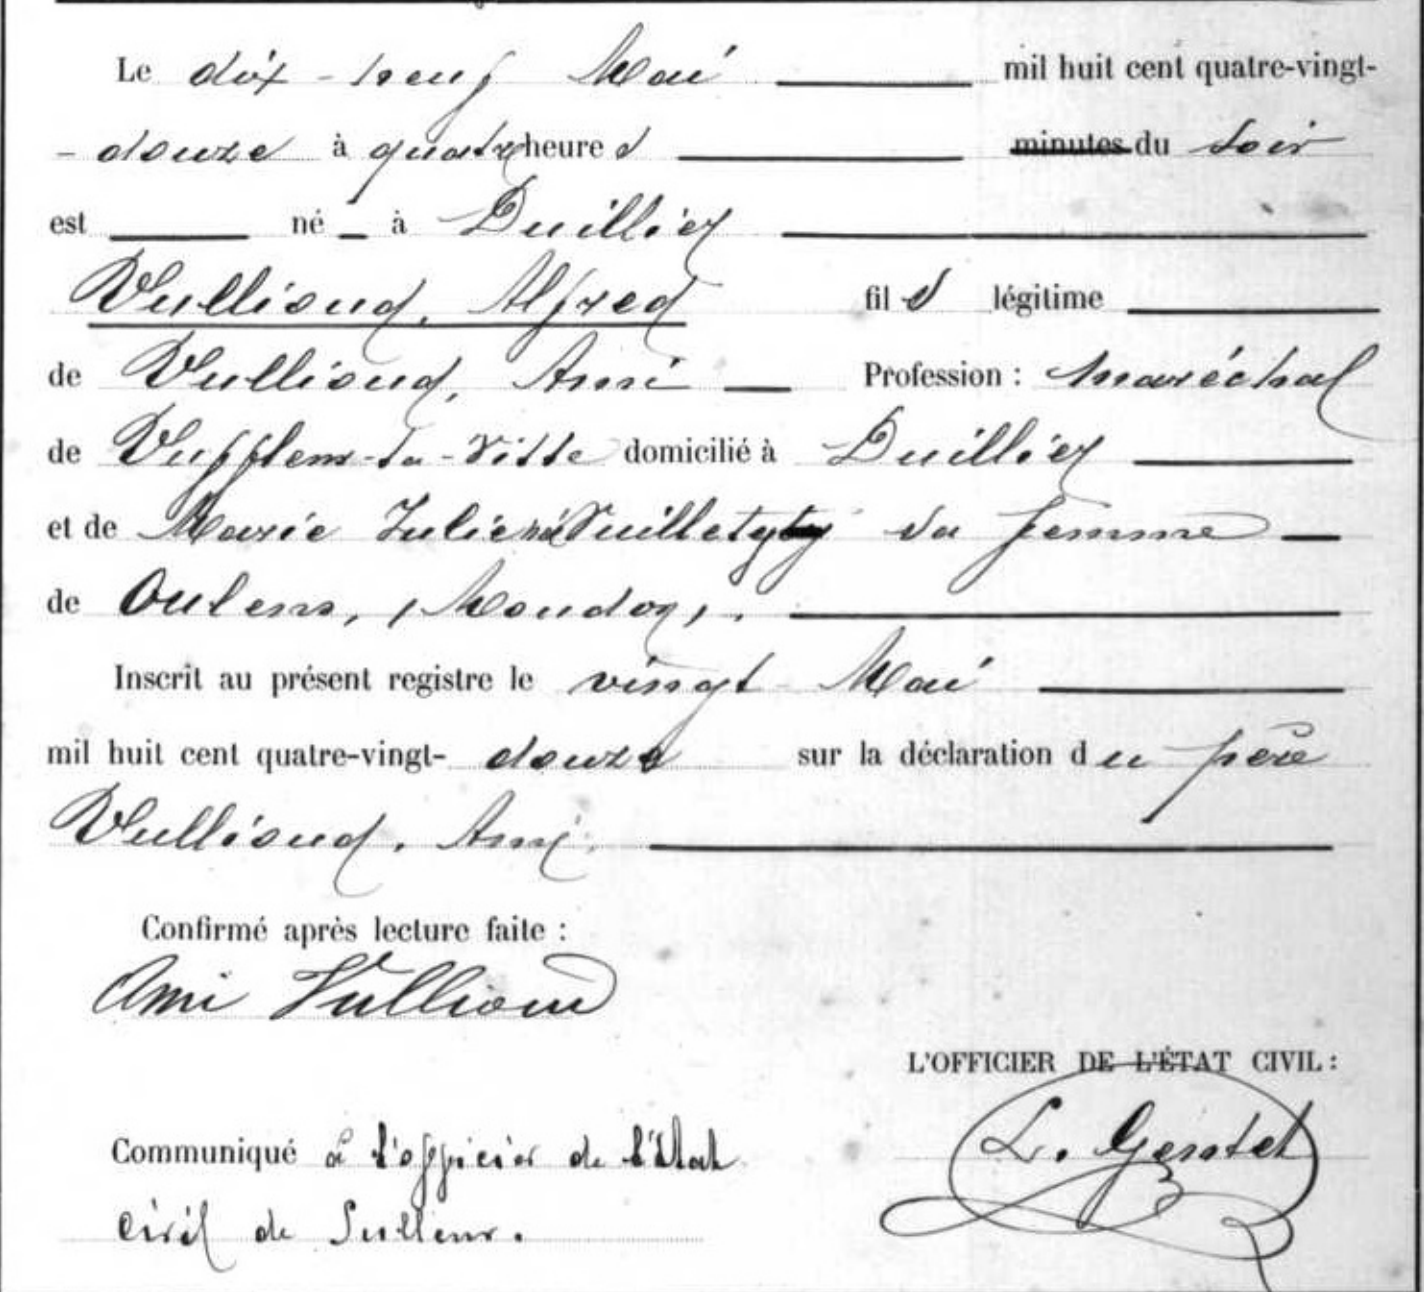 Le dix-neuf Mai mil huit cent quatre-vingt-
- douze à quatre heures minutes du soir
est né à Duillier
Vullioud, Alfred fils légitime
de Vullioud, Ami Profession : maréchal
de Vufflens-la-Ville domicilié à Duillier
et de Marie Julie née sa femme
de Oulens, (Moudon).
Inscrit au présent registre le vingt Mai
mil huit cent quatre-vingt- douze sur la déclaration du père
Vullioud, Ami.
Confirmé après lecture faite :
Ami Vullioud
L'OFFICIER DE L'ÉTAT CIVIL :
L.
Communiqué à l'officier de l'état
civil de